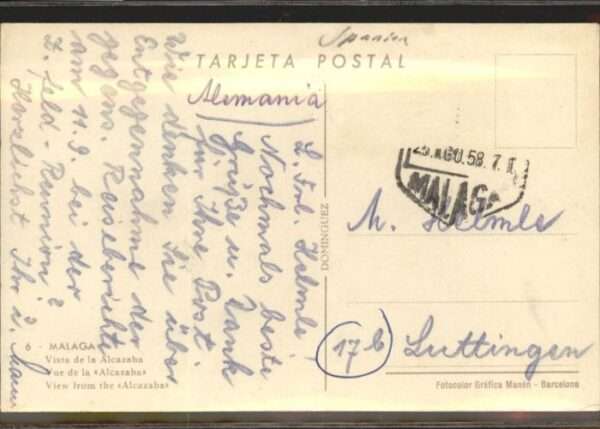 Spanien
TARJETA POSTAL
Alemania
L. Frl. Helmle,
Nochmals beste
Grüße u. Dank
für Ihre Post.
Wie denken Sie über
Entgegennahme der
gegens. Reiseberichte
am 11.9. bei der
Z.feld-Reunion?
Herzlichst Ihr
AGO.58.7
MALAGA
M. Helmle
17b
Luttingen
DOMINGUEZ
6 - MALAGA
Vista de la Alcazaba
Vue de la «Alcazaba»
View from the «Alcazaba»
Fotocolor Gráfica Manén - Barcelona